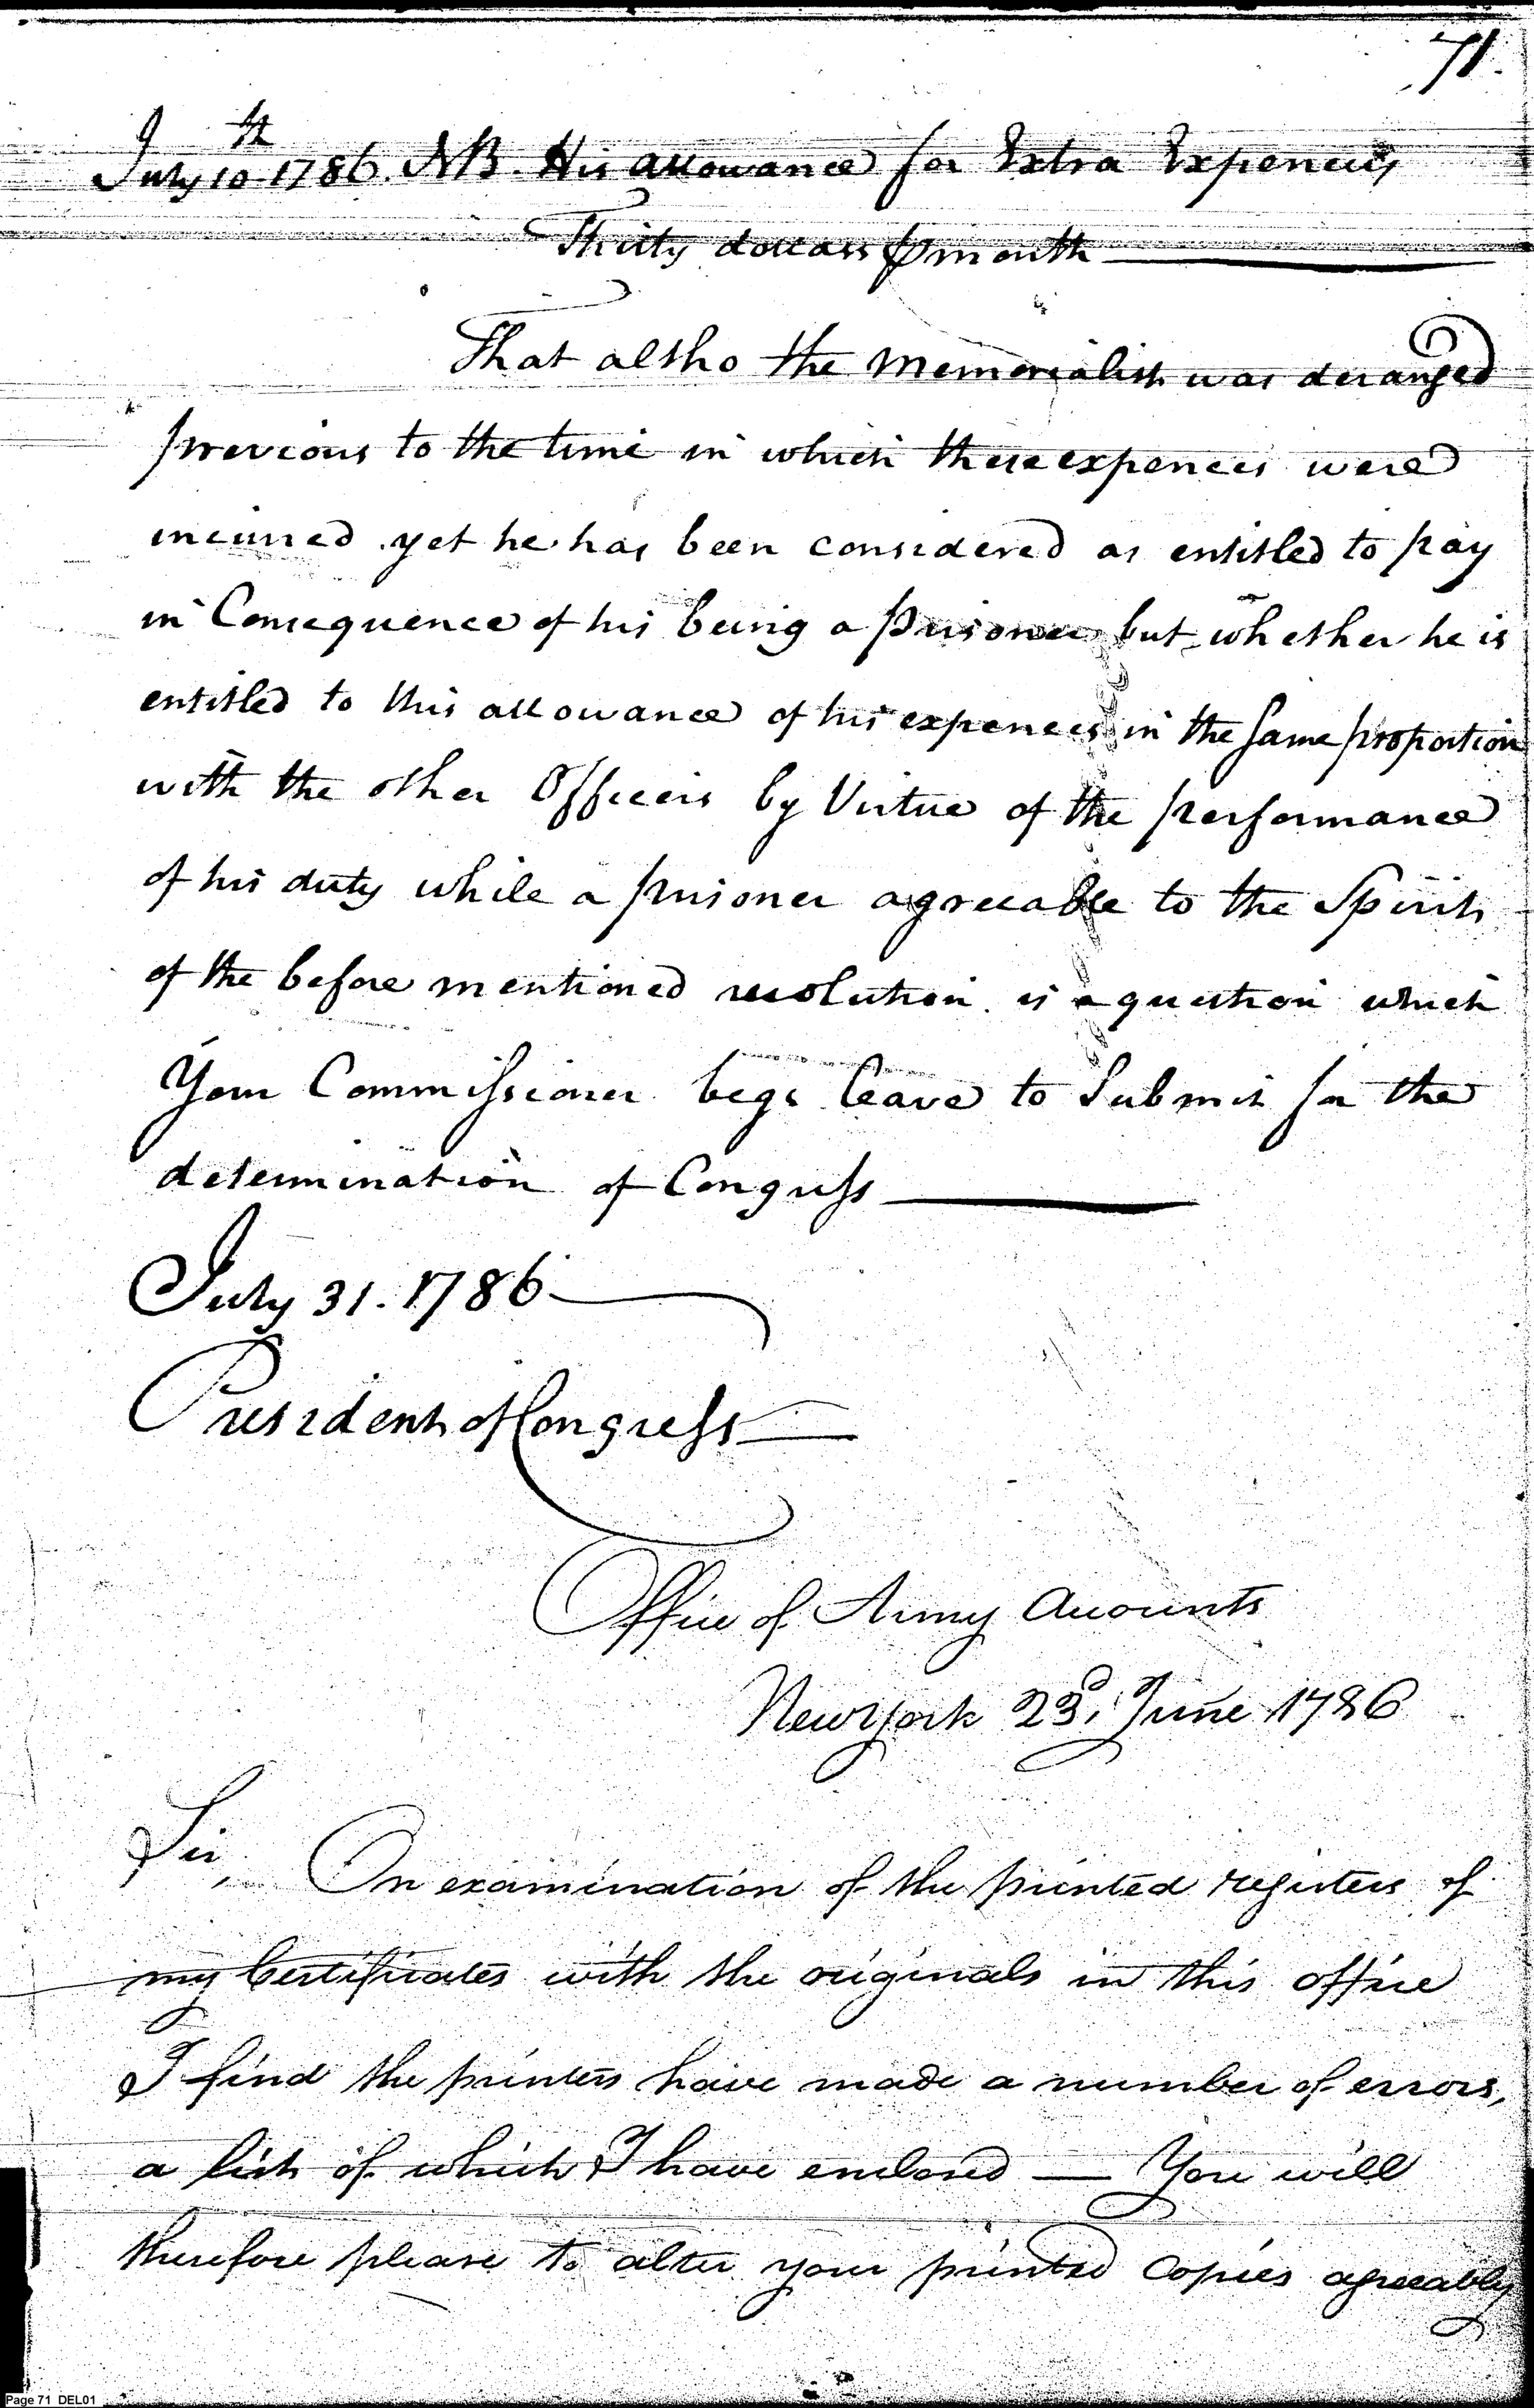 71.
July 10th 1786. NB. His allowance for Extra Expences
Thirty dollars ⅌ month
That altho the Memorialist was deranged
previous to the time in which these expences were
incurred yet he has been considered as entitled to pay
in Consequence of his being a prisoner but whether he is
entitled to this allowance of his expences in the same proportion
with the other Officers by Virtue of the performance
of his duty while a prisoner agreeable to the Spirit
of the before mentioned resolution is a question which
Your Commissioner begs leave to Submit for the
determination of Congress
July 31. 1786
President of Congress
Office of Army Accounts
New York 23d. June 1786
Sir, On examination of the printed registers of
my Certificates with the originals in this office
I find the printers have made a number of errors,
a list of which I have enclosed — You will
therefore please to alter your printed Copies agreeably
Page 71 DEL01